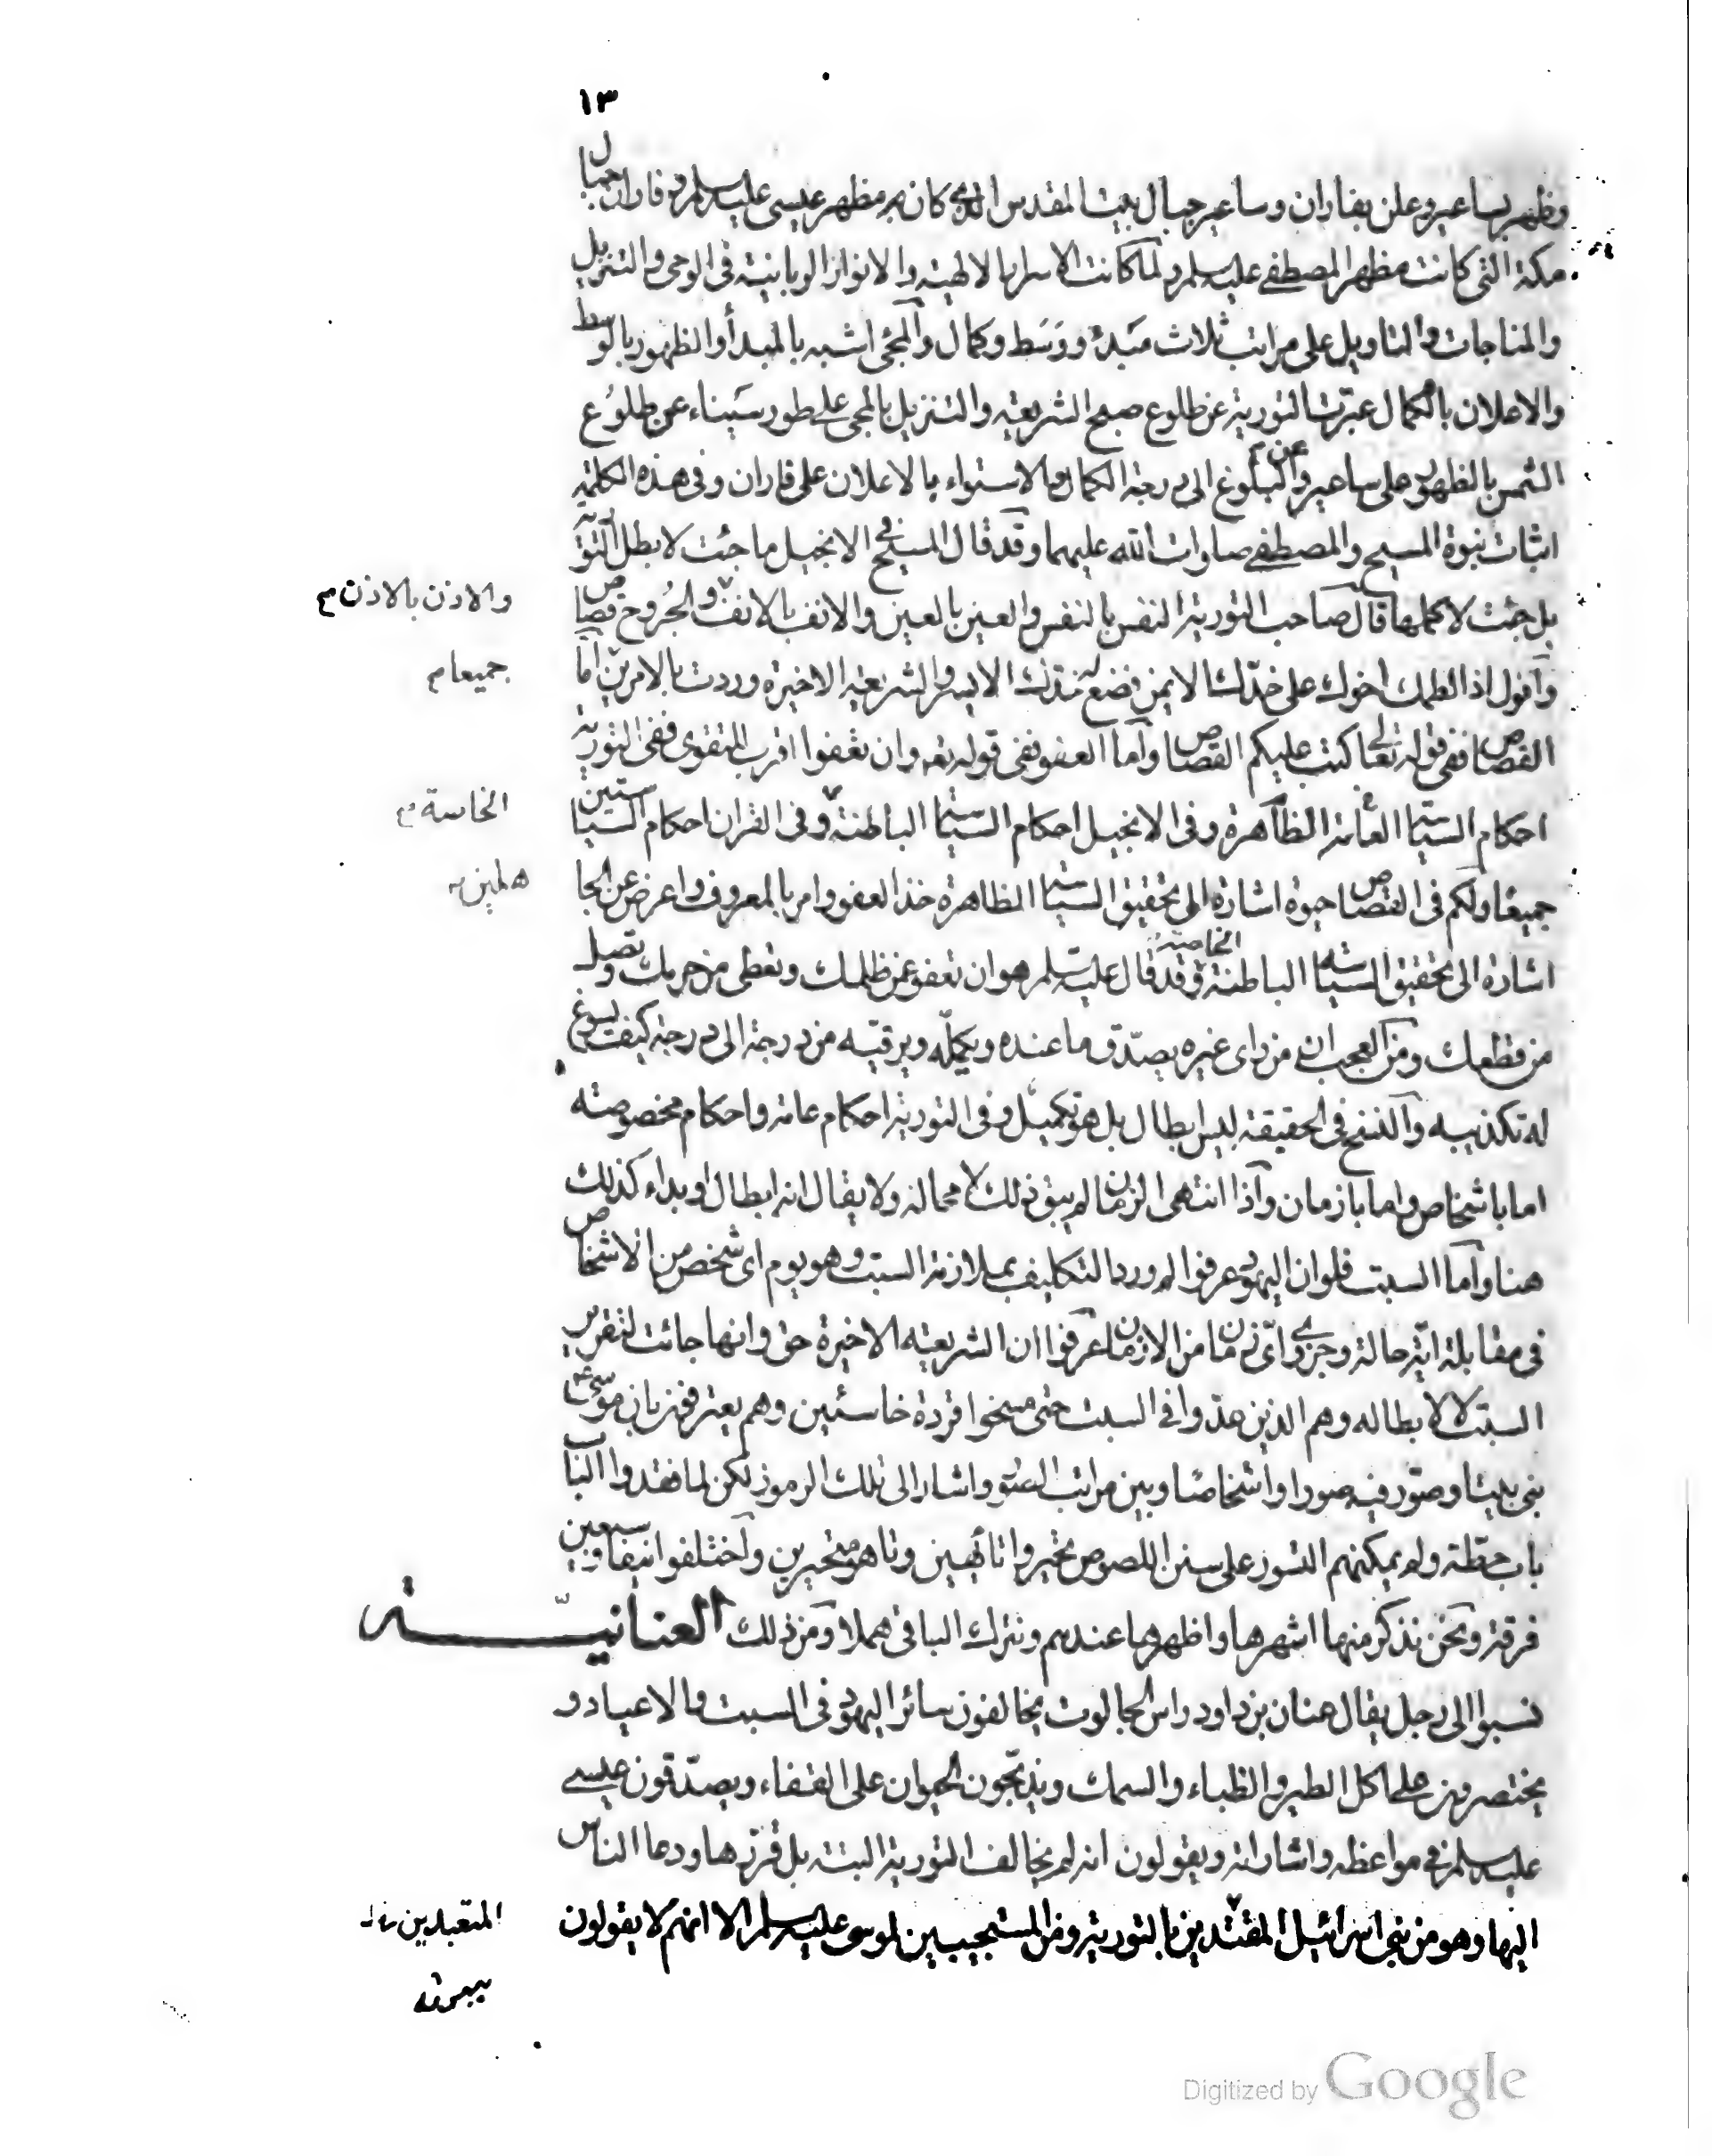 ١٣
وظهر بساعير وعلن بفاران وساعير جبال بيت المقدس الذى كان مظهر عيسى عليه سلم وفاران جبال
مكة التى كانت مظهر المصطفى عليه سلم ولما كانت الاسرار الالهية والانوار الربانية فى الوحى والتنزيل
والمناجات والتاويل على مراتب ثلاث مبدء ووسط وكمال والمجئ اشبه بالمبدأ والظهور بالوسط
والاعلان بالكمال عبرت التورية عن طلوع صبح الشريعة والتنزيل بالمجئ على طور سيناء عن طلوع
الشمس بالظهور على ساعير وعن البلوغ الى درجة الكمال والاستواء بالاعلان على فاران وفى هذه الكلمة
اثبات نبوة المسيح والمصطفى صلوات الله عليهما وقد قال المسيح فى الانجيل ما جئت لابطل التورية
بل جئت لاكملها قال صاحب التورية النفس بالنفس والعين بالعين والانف بالانف والجروح قصاص
والاذن بالاذن م
واقول اذا لطمك اخوك على خدك الايمن فضع له خدك الايسر والشريعة الاخيرة وردت بالامرين اما
جميعا م
القصاص ففى قوله تعالى كتب عليكم القصاص واما العفو ففى قوله تعه وان تعفوا اقرب للتقوى ففى التورية
احكام السياسة العامة الظاهرة وفى الانجيل احكام السياسة الباطنة وفى القران احكام السياستين
الخاصة م
جميعا ولكم فى القصاص حيوة اشارة الى تحقيق السياسة الظاهرة خذ العفو وامر بالمعروف واعرض عن الجا
هلين
اشارة الى تحقيق السياسة الباطنة الخاصة وقد قال عليه سلم هو ان تعفو عمن ظلمك وتعطى من حرمك وتصل
من قطعك ومن العجب ان من راى غيره يصدق ما عنده ويكمله ويرقيه من درجة الى درجة كيف يسوغ
له تكذيبه والنسخ فى الحقيقة ليس ابطال بل هو تكميل وفى التورية احكام عامة واحكام مخصوصة
اما باشخاص واما بازمان واذا انتهى الزمان لم يبق ذلك لا محالة ولا يقال انه ابطال او بداء كذلك
هنا واما السبت فلو ان اليهود عرفوا لم ورد التكليف بملازمة السبت وهو يوم اى شخص من الاشخاص
فى مقابلة اية حالة وجزء اى زمان من الازمان عرفوا ان الشريعة الاخيرة حق وانها جائت لتقرير
السبت لا لابطاله وهم الذين عدوا فى السبت حتى مسخوا قردة خاسئين وهم يعترفون بان موسى عم
بنى بيتا وصور فيه صورا واشخاصا وبين مراتب الصور واشار الى تلك الرموز لكن لما فقدوا الباب
باب حطة ولم يمكنهم التسور على سنن اللصوص تحيروا تائهين وتاهو متحيرين واختلفوا نيفا وسبعين
فرقة ونحن نذكر منها اشهرها واظهرها عندهم ونترك الباقى هملا ومن ذلك العنانيّة
نسبوا الى رجل يقال عنان بن داود راس الجالوت يخالفون سائر اليهود فى السبت والاعياد و
يختصرون على اكل الطير والظباء والسمك ويذبحون الحيوان على القفاء ويصدقون عيسى
عليه سلم فى مواعظه واشاراته ويقولون انه لم يخالف التورية البتة بل قررها ودعا الناس
اليها وهو من بنى اسرائيل المقتدين بالتورية ومن المستجيبين لموسى عليه سلم الا انهم لا يقولون
المتعبدين
بنبوته
Digitized by Google